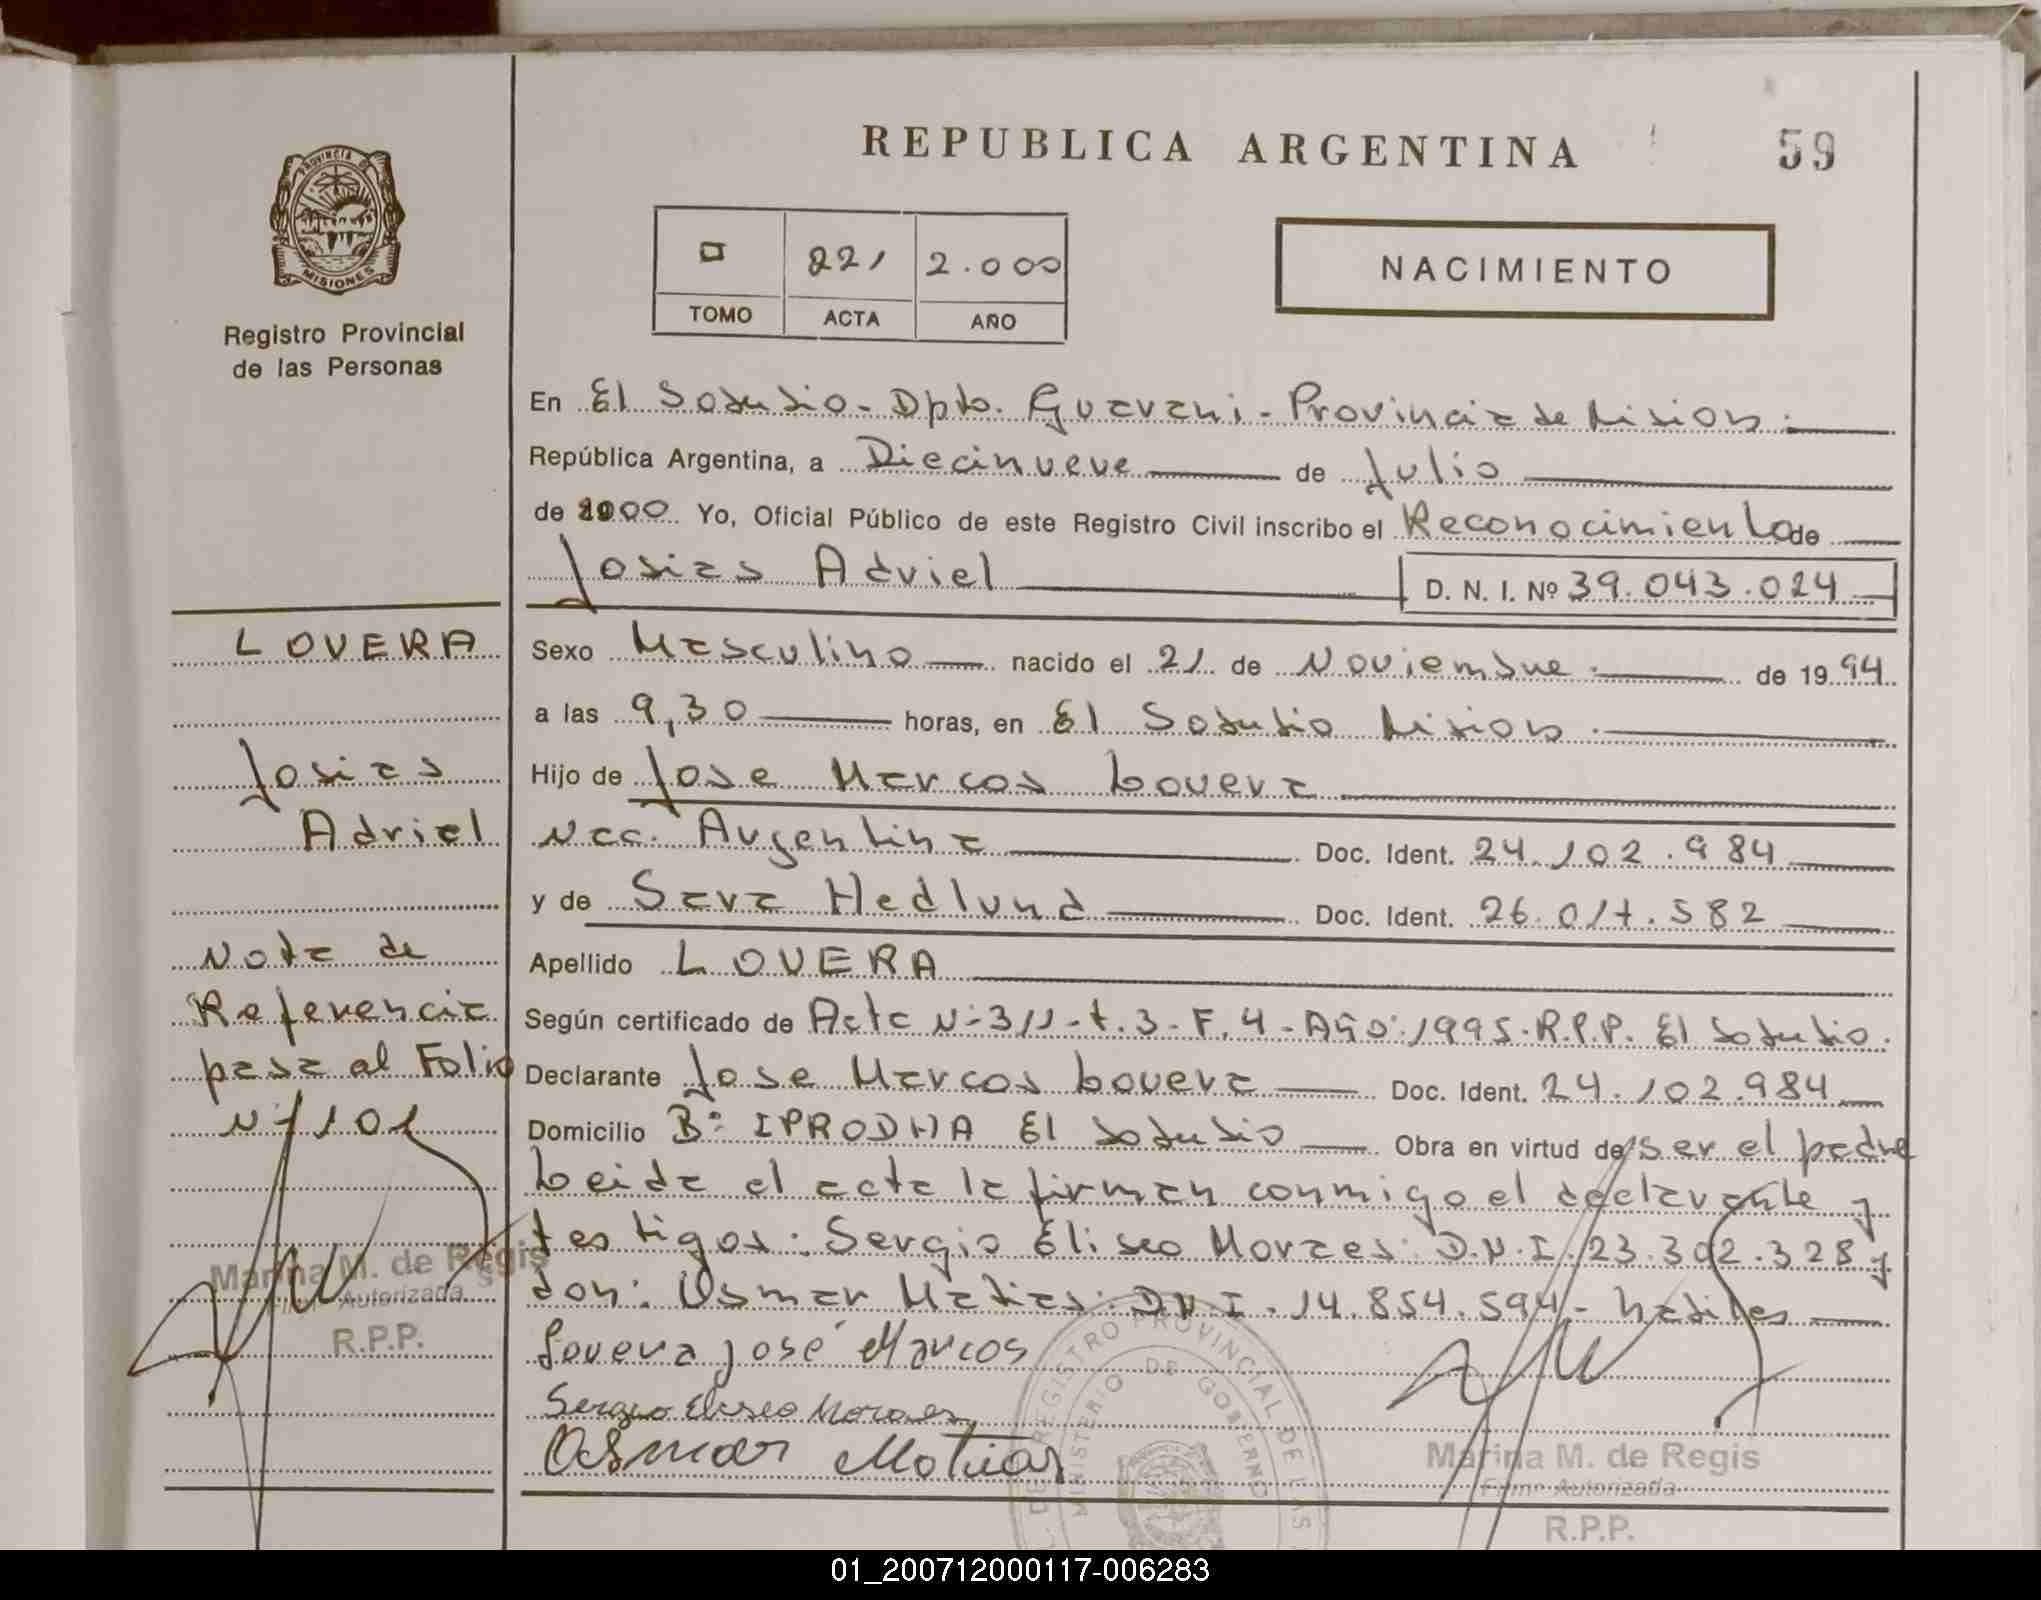 REPUBLICA ARGENTINA
59
PROVINCIA DE MISIONES
Registro Provincial
de las Personas
221 2.000
TOMO ACTA AÑO
NACIMIENTO
En El Soberbio - Dpto. Guarani - Provincia de Misiones
República Argentina, a Diecinueve de Julio
de 2000 Yo, Oficial Público de este Registro Civil inscribo el Reconocimiento de
Josias Adriel D. N. I. Nº 39.043.024
LOVERA
Josias
Adriel
Nota de
Referencia
pasa al Folio
Nº 101
Marina M. de Regis
Firma Autorizada
R.P.P.
Sexo Masculino nacido el 21 de Noviembre de 1994
a las 9,30 horas, en El Soberbio Misiones
Hijo de Jose Marcos Lovera
Nac. Argentina Doc. Ident. 24.102.984
y de Sara Hedlund Doc. Ident. 26.017.582
Apellido LOVERA
Según certificado de Acta Nº 311 - t. 3 - F. 4 - Año: 1995. R.P.P. El Soberbio.
Declarante Jose Marcos Lovera Doc. Ident. 24.102.984
Domicilio Bº IPRODHA El Soberbio Obra en virtud de ser el padre
Leida el acta la firman conmigo el declarante y
testigos: Sergio Eliseo Moraes: D.N.I. 23.302.328 y
don: Osmar Matias: D.N.I. 14.854.594 - habiles
Lovera José Marcos
Sergio Eliseo Moraes
Osmar Matias
REGISTRO PROVINCIAL DE LAS
MINISTERIO DE GOBIERNO
Marina M. de Regis
Firma Autorizada
R.P.P.
01_200712000117-006283